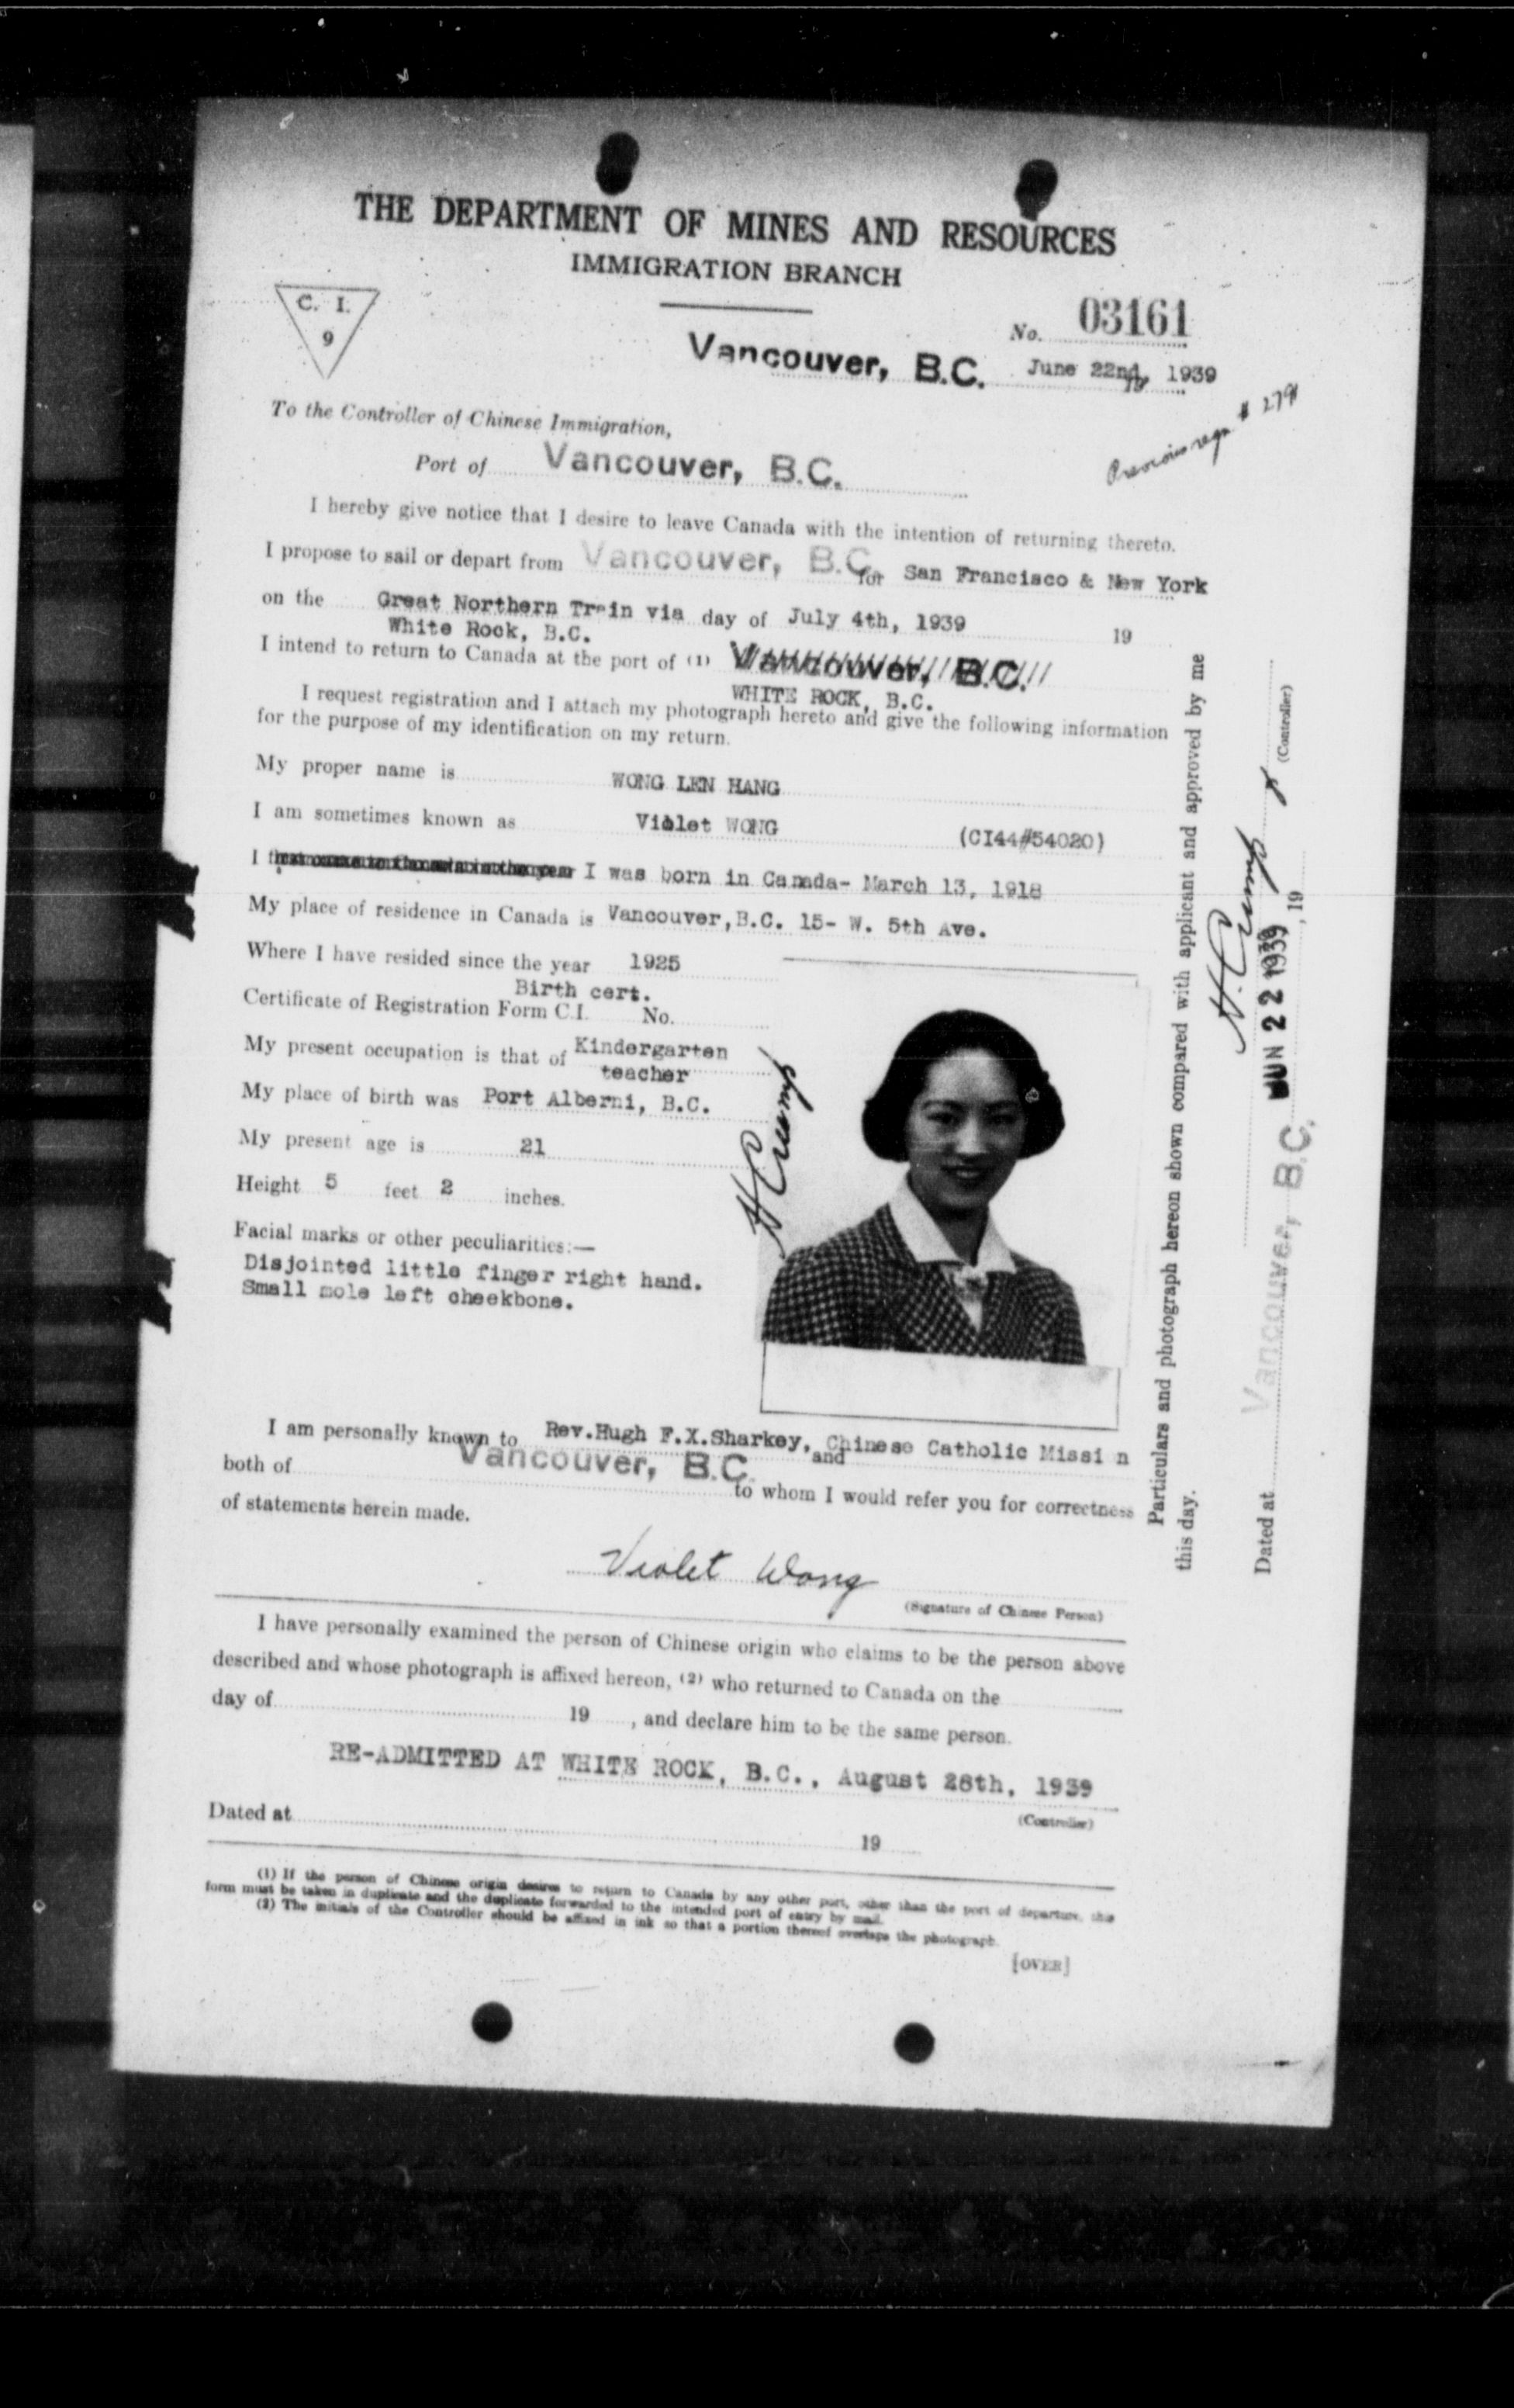 THE DEPARTMENT OF MINES AND RESOURCES
IMMIGRATION BRANCH
C. I.
9
No. 03161
Vancouver, B.C. June 22nd, 1939
To the Controller of Chinese Immigration,
Port of Vancouver, B.C.
Previous regn #
I hereby give notice that I desire to leave Canada with the intention of returning thereto.
I propose to sail or depart from Vancouver, B.C. for San Francisco & New York
on the Great Northern Train via day of July 4th, 1939 19
White Rock, B.C.
I intend to return to Canada at the port of (1) Vancouver, B.C.
WHITE ROCK, B.C.
I request registration and I attach my photograph hereto and give the following information
for the purpose of my identification on my return.
My proper name is WONG LEN HANG
I am sometimes known as Violet WONG (CI44#54020)
I first came to Canada in the year I was born in Canada- March 13, 1918
My place of residence in Canada is Vancouver, B.C. 15- W. 5th Ave.
Where I have resided since the year 1925
Birth cert.
Certificate of Registration Form C.I. No.
My present occupation is that of Kindergarten
teacher
My place of birth was Port Alberni, B.C.
My present age is 21
Height 5 feet 2 inches.
Facial marks or other peculiarities:—
Disjointed little finger right hand.
Small mole left cheekbone.
I am personally known to Rev.Hugh F.X.Sharkey, and Chinese Catholic Missi n
both of Vancouver, B.C. to whom I would refer you for correctness
of statements herein made.
Violet Wong
(Signature of Chinese Person)
I have personally examined the person of Chinese origin who claims to be the person above
described and whose photograph is affixed hereon, (2) who returned to Canada on the
day of 19 , and declare him to be the same person.
RE-ADMITTED AT WHITE ROCK, B.C., August 28th, 1939
(Controller)
Dated at 19
(1) If the person of Chinese origin desires to return to Canada by any other port, other than the port of departure, this
form must be taken in duplicate and the duplicate forwarded to the intended port of entry by mail.
(2) The initials of the Controller should be affixed in ink so that a portion thereof overlaps the photograph.
[OVER]
Particulars and photograph hereon shown compared with applicant and approved by me
this day.
(Controller)
Dated at Vancouver, B.C. JUN 22 1939 , 19